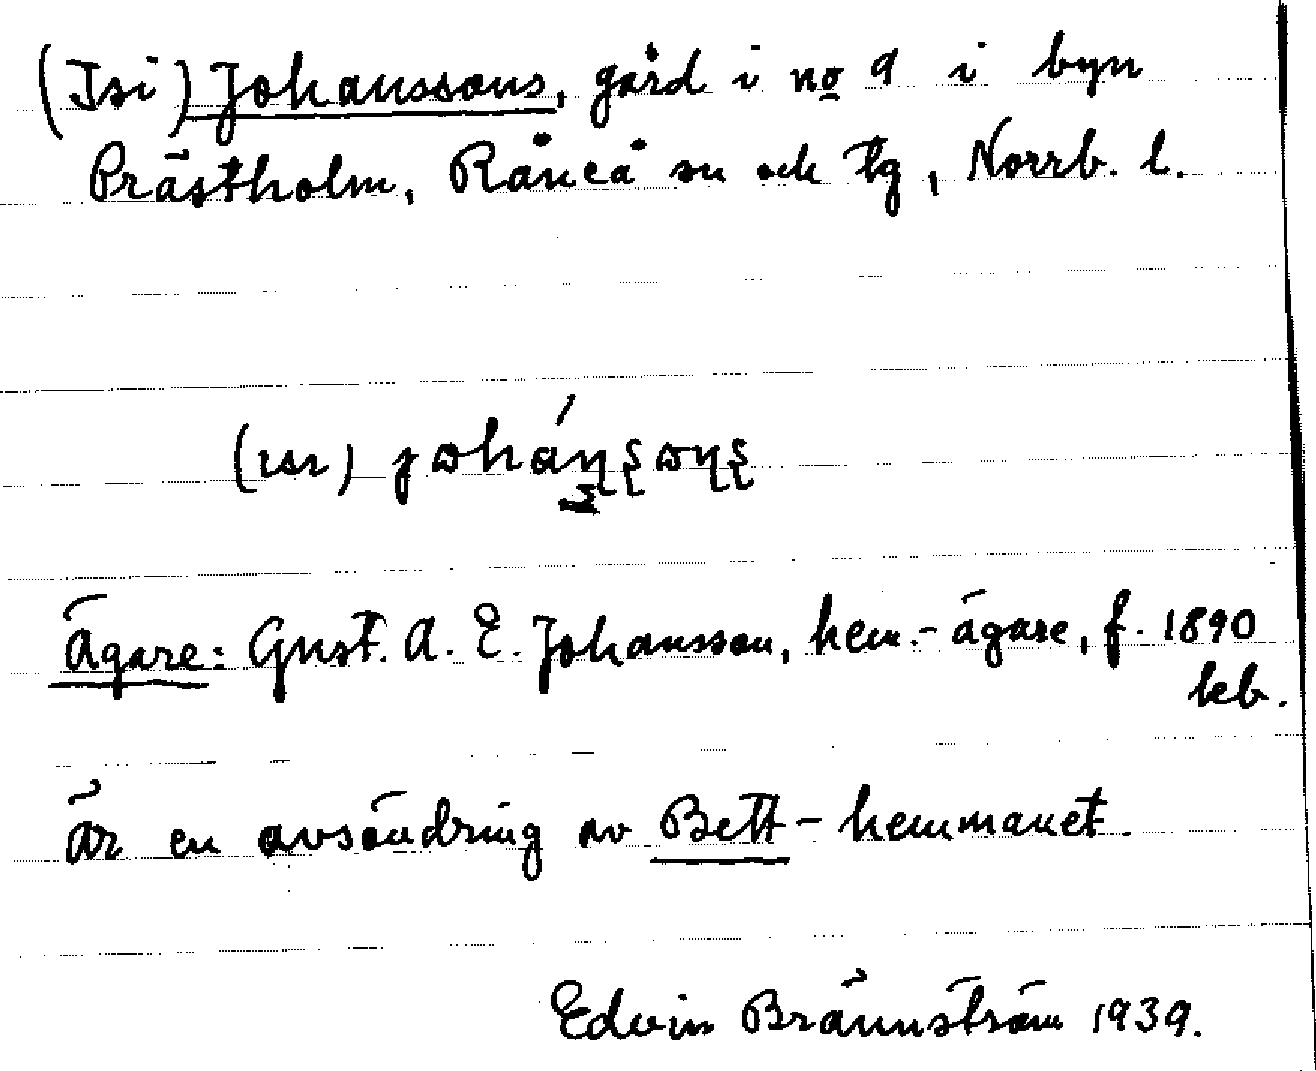 (Isi) Johanssons, gård i no 9 i byn
Prästholm, Råneå sn och tg, Norrb. l.
(ısı) johánsons
Ägare: Gust. A. E. Johansson, hem.-ägare, f. 1890
heb.
Är en avsöndring av Bett-hemmanet.
Edvin Brännström 1939.